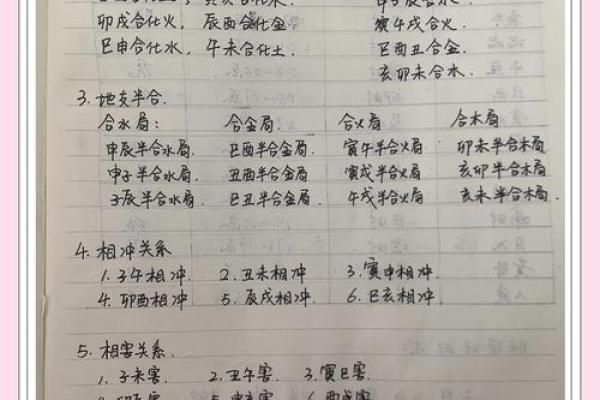 卯戌合化火, 辰酉合化金 寅午戌合火.
巳申合化水, 午未合化土 巳酉丑合金.
亥卯未合木.
3. 地支半合.
合水局: 合金局: 合火局 合木局
申辰半合水局. 巳酉半合金局. 寅午半合火局 卯未半合木局
申子半合水局. 丑酉半合金局 寅戌半合火局 亥卯半合木局
子辰半合水局. 巳丑半合金局. 午戌半合火局 亥未半合木局.
4. 相冲关系
1. 子午相冲 2. 丑未相冲 3. 寅申相冲.
4. 卯酉相冲 5. 辰戌相冲. 6. 巳亥相冲
5. 相害关系.
1. 子未害. 2. 丑午害. 3. 寅巳害